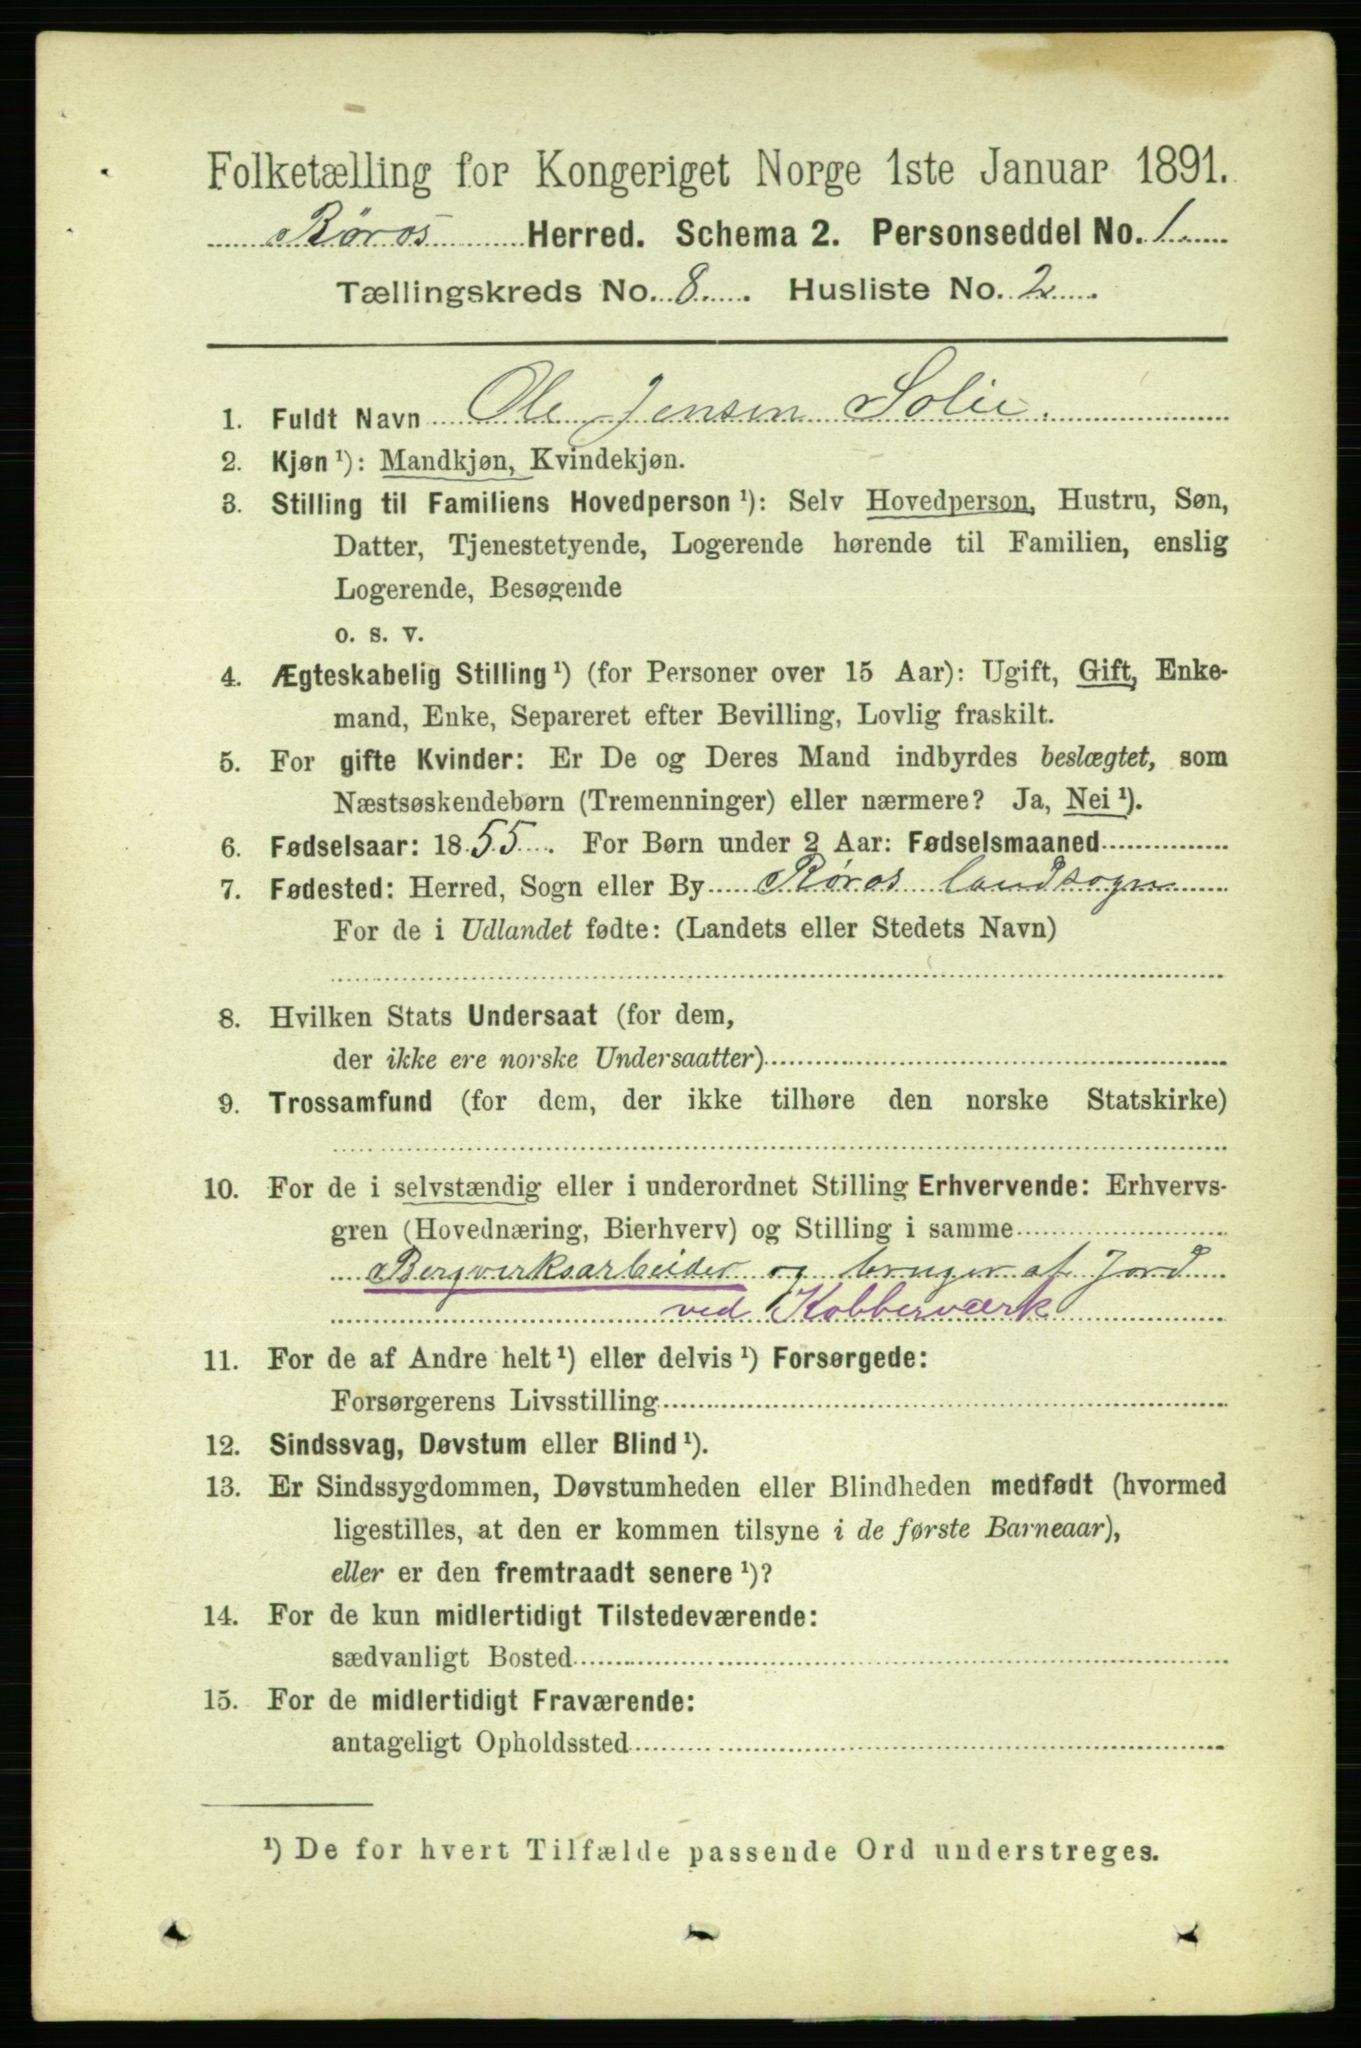 Folketælling for Kongeriget Norge 1ste Januar 1891.
Røros Herred. Schema 2. Personseddel No. 1
Tællingskreds No. 8. Husliste No. 2
1. Fuldt Navn Ole Jensen Solie.
2. Kjøn ¹): Mandkjøn, Kvindekjøn.
3. Stilling til Familiens Hovedperson ¹): Selv Hovedperson, Hustru, Søn,
Datter, Tjenestetyende, Logerende hørende til Familien, enslig
Logerende, Besøgende
o. s. v.
4. Ægteskabelig Stilling ¹) (for Personer over 15 Aar): Ugift, Gift, Enke-
mand, Enke, Separeret efter Bevilling, Lovlig fraskilt.
5. For gifte Kvinder: Er De og Deres Mand indbyrdes beslægtet, som
Næstsøskendebørn (Tremenninger) eller nærmere? Ja, Nei ¹).
6. Fødselsaar: 1855. For Børn under 2 Aar: Fødselsmaaned
7. Fødested: Herred, Sogn eller By Røros landsogn
For de i Udlandet fødte: (Landets eller Stedets Navn)
8. Hvilken Stats Undersaat (for dem,
der ikke ere norske Undersaatter)
9. Trossamfund (for dem, der ikke tilhøre den norske Statskirke)
10. For de i selvstændig eller i underordnet Stilling Erhvervende: Erhvervs-
gren (Hovednæring, Bierhverv) og Stilling i samme
Bergverksarbeider og bruger af Jord
ved Kobberværk
11. For de af Andre helt ¹) eller delvis ¹) Forsørgede:
Forsørgerens Livsstilling
12. Sindssvag, Døvstum eller Blind ¹).
13. Er Sindssygdommen, Døvstumheden eller Blindheden medfødt (hvormed
ligestilles, at den er kommen tilsyne i de første Barneaar),
eller er den fremtraadt senere ¹)?
14. For de kun midlertidigt Tilstedeværende:
sædvanligt Bosted
15. For de midlertidigt Fraværende:
antageligt Opholdssted
¹) De for hvert Tilfælde passende Ord understreges.